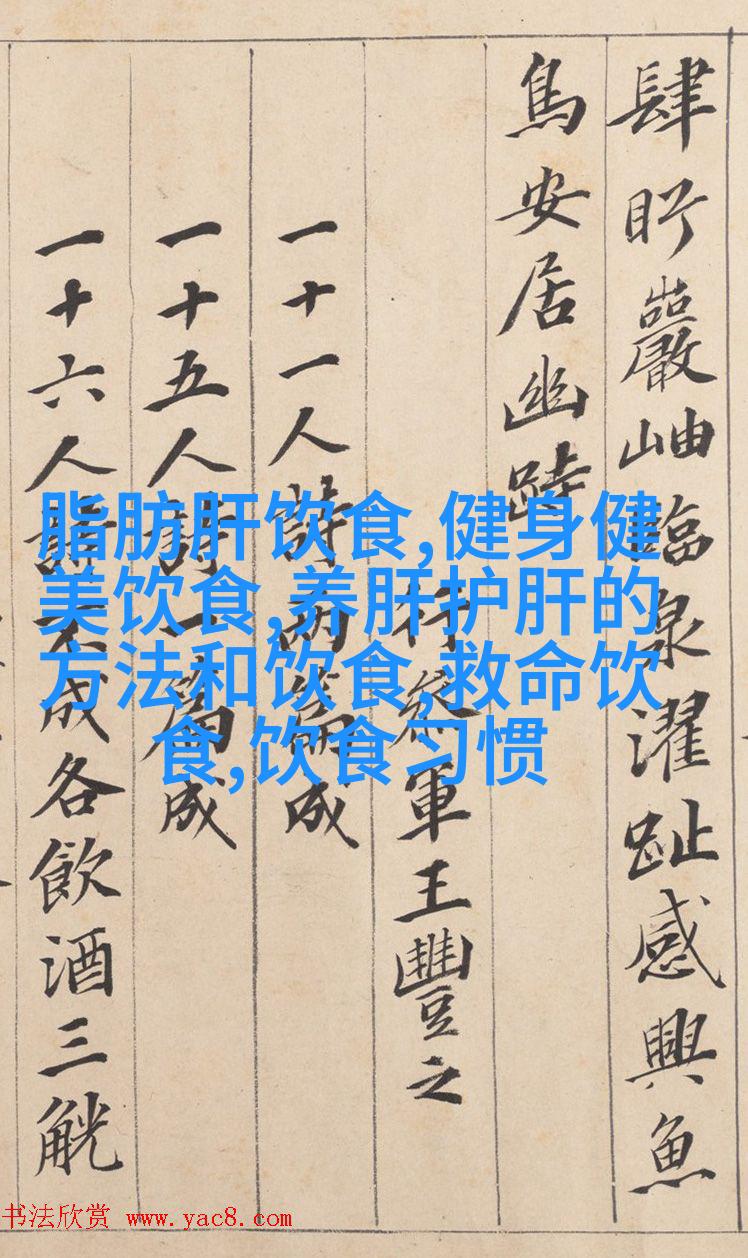 肆盱巖岫臨泉濯趾感興魚
鳥安居幽跱
行參軍王豐之
一十一人詩兩篇成
一十五人詩一篇成
一十六人詩不成各飲酒三觥
脂肪肝饮食,健身健
美饮食,养肝护肝的
方法和饮食,救命饮
食,饮食习惯
书法欣赏 www.yac8.com